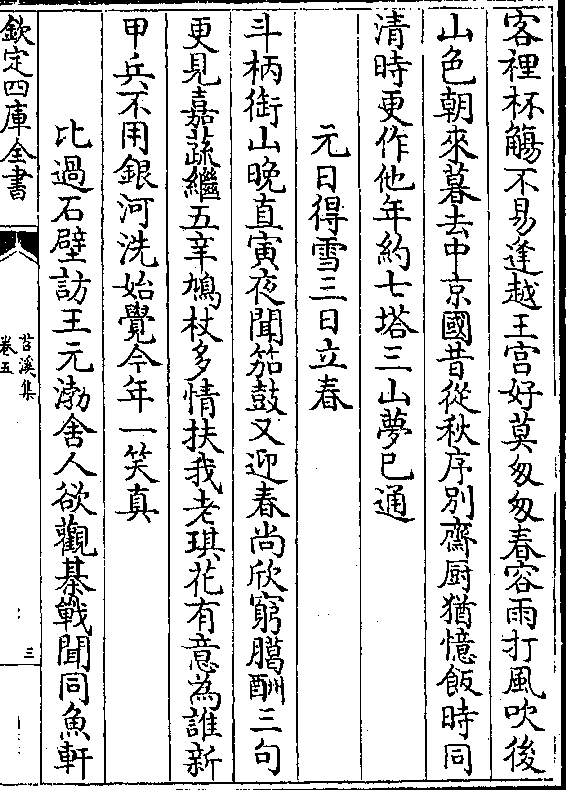 客裡杯觴不易逢越王宫好莫匆匆春容雨打風吹後
山色朝來暮去中京國昔從秋序別齋厨猶憶飯時同
清時更作他年約七塔三山夢已通
元日得雪三日立春
斗柄衘山晚直寅夜聞笳鼓又迎春尚欣窮臈酬三句
更見嘉蔬繼五辛鳩杖多情扶我老琪花有意為誰新
甲兵不用銀河洗始覺今年一笑真
比過石壁訪王元渤舍人欲觀棊戰聞同魚軒
欽定四庫全書
苕溪集
卷五
三